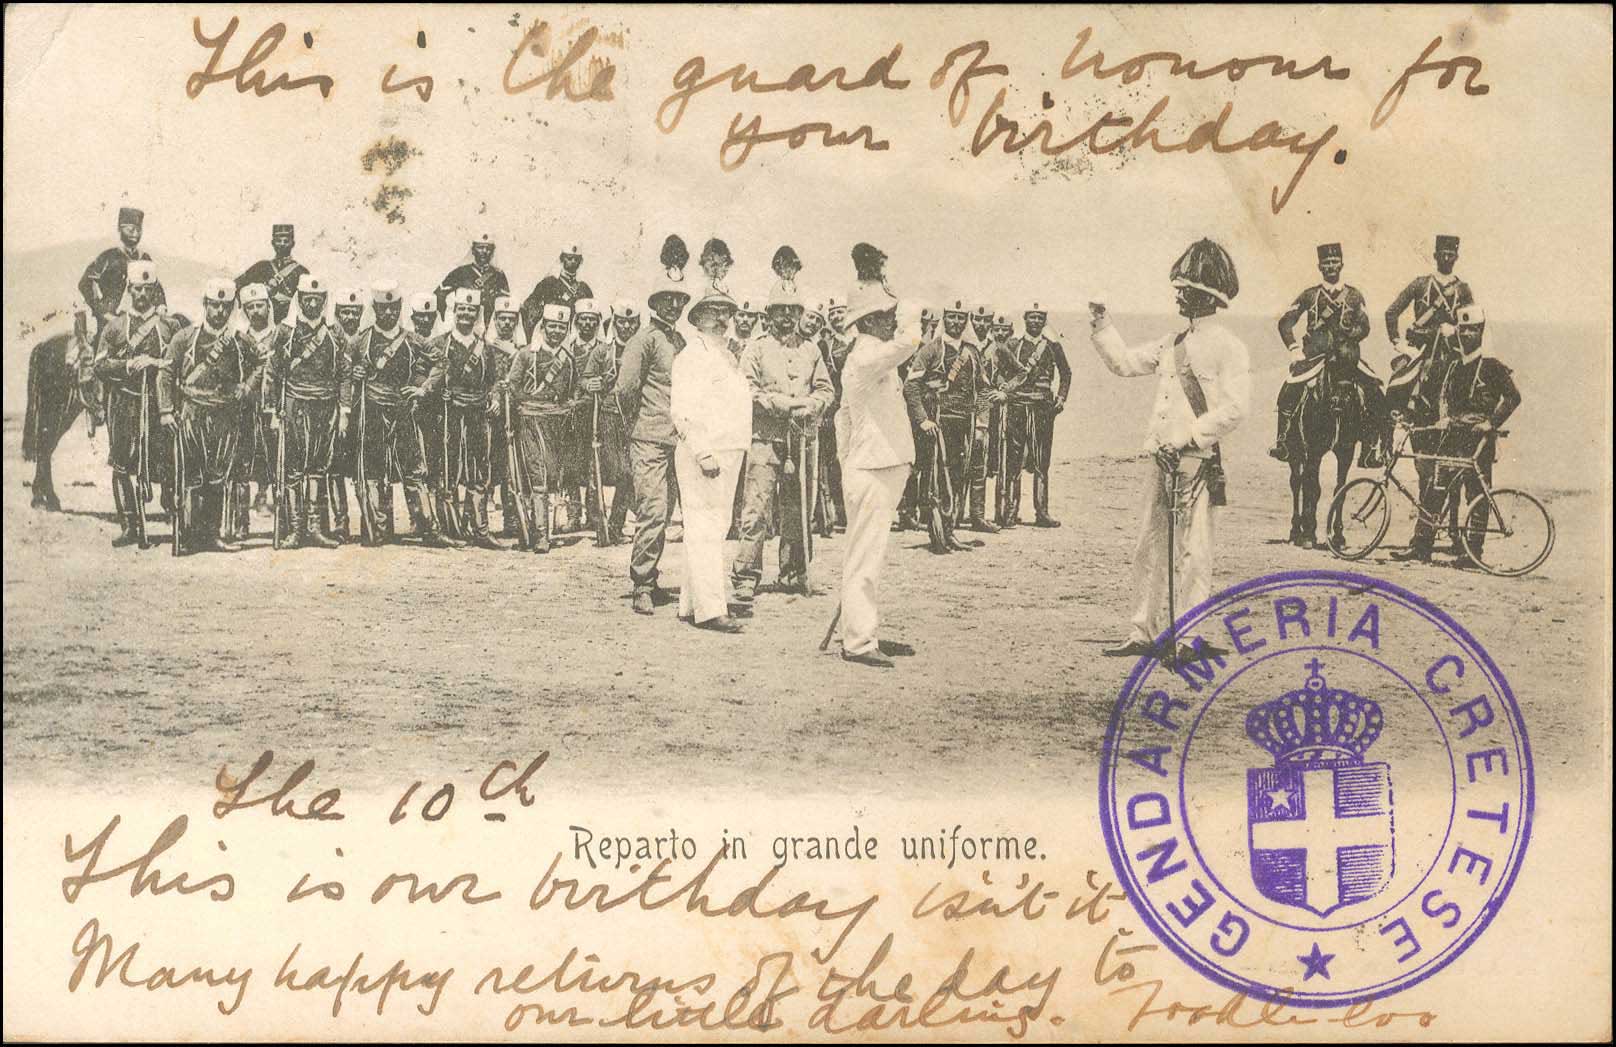 This is the guard of honour for
your birthday.
The 10th
Reparto in grande uniforme.
This is our birthday isn't it
Many happy returns of the day to
our little darling. Toodle loo
GENDARMERIA CRETESE